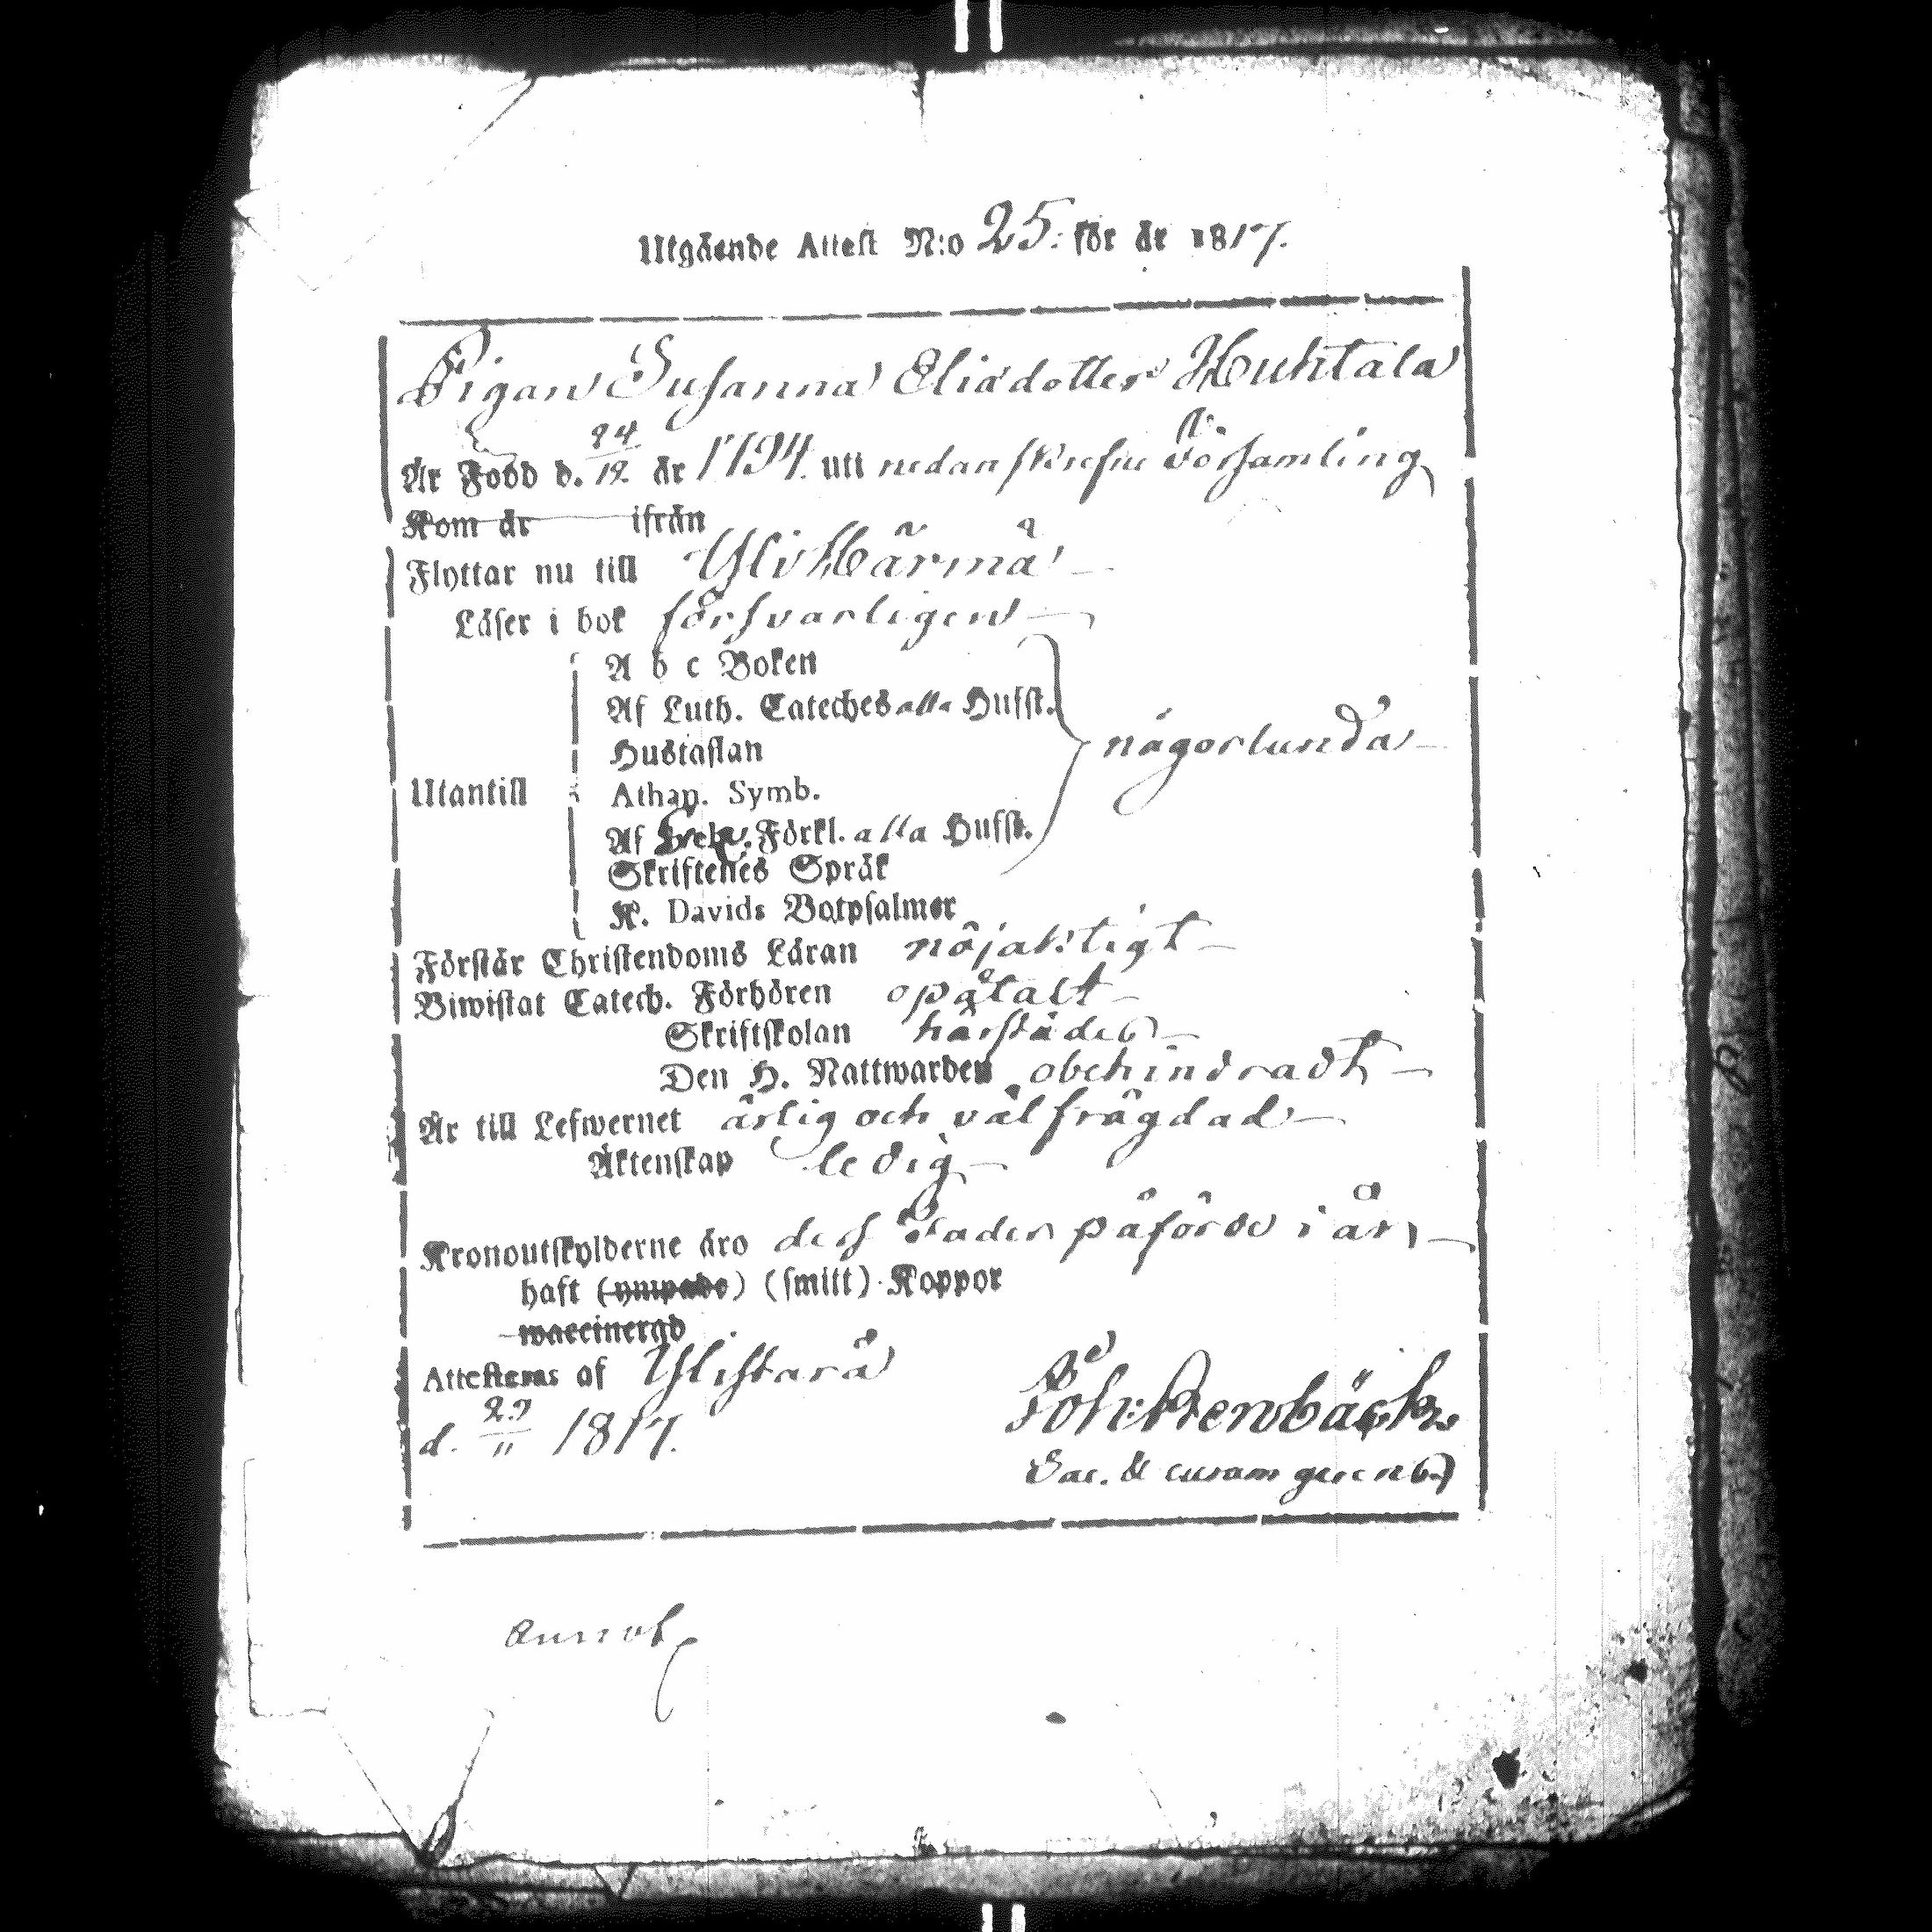 Utgående Attest N:o 25. för år 1817.
Pigan Susanna Eliædotter Huhtala
Är Född d. 24/12 år 1794. uti nedanskrefne Församling
Kom år ifrån
Flyttar nu till Yli Härmä
Läser i bok försvarligen
A b c Boken
Af Luth. Cateches alla Hufst.
Hustaflan
någorlunda
Utantill
Athan. Symb.
Af Förkl. alla Hufst.
Skriftenes Språk
K. Davids Botpsalmer
Förstår Christendoms Läran nöjaktigt
Biwistat Catech. Förhören opåtalt
Skriftskolan härstädes
Den H. Nattwarden obehindradt
Är till Lefwernet ärlig och välfrägdad
Äktenskap ledig
Kronoutskylderne äro dess Fader påförde i år
haft (ympade) (smitt) Koppor
waccinerad
Attesteras af Ylistarå
d. 29/11 1817.
Joh: Stenbäck
Sac. & curam gerens